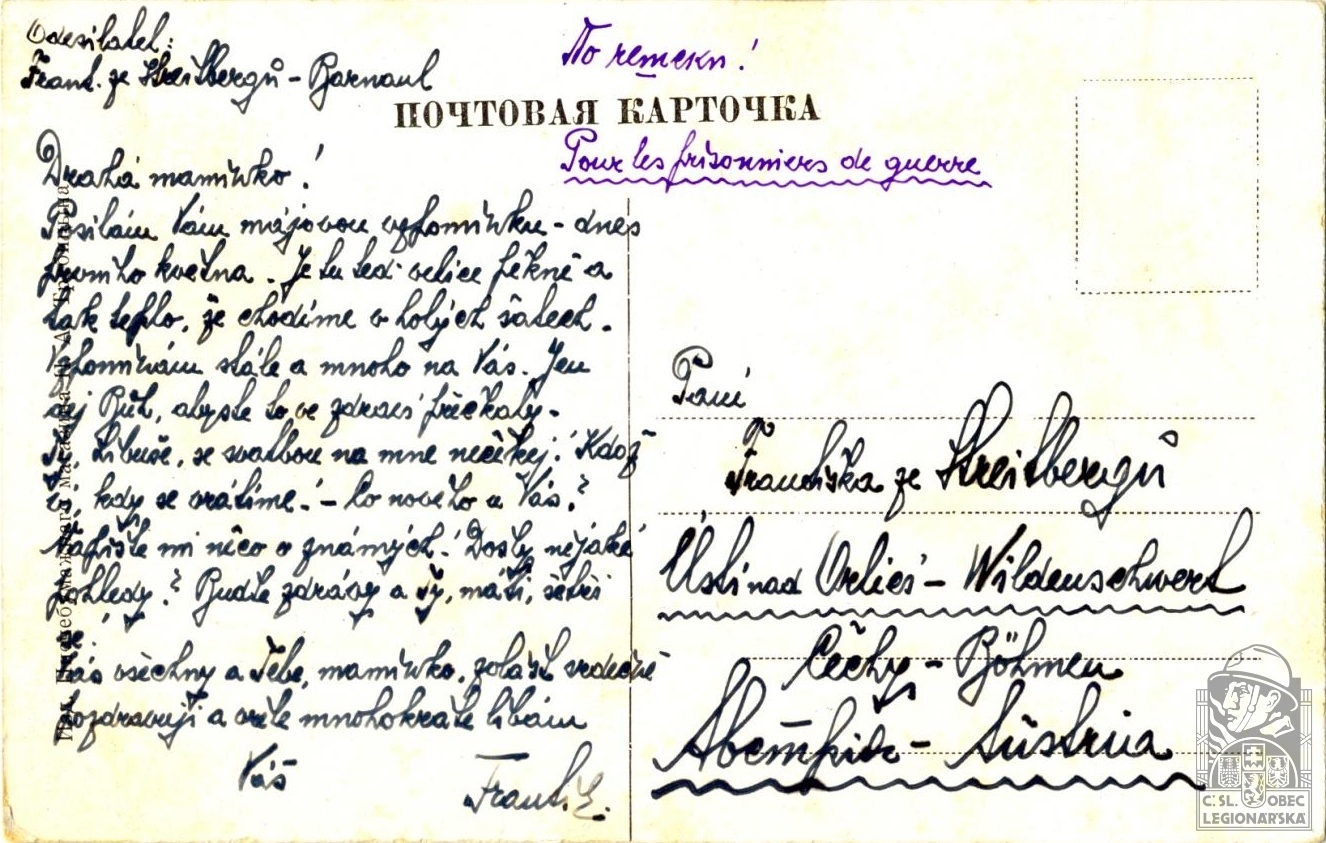 Odesílatel:
Frant. ze Streitbergů - Barnaul
ПОЧТОВАЯ КАРТОЧКА
Pour les prisonniers de guerre
Drahá maminko!
Posílám Vám májovou vzpomínku - dnes
prvního května. Je tu teď velice pěkně a
tak teplo, že chodíme v holých šatech.
Vzpomínám stále a mnoho na Vás. Jen
dej Bůh, abyste to ve zdraví přečkaly.
Ty, Libuše, se svatbou na mne nečekej! Kdož
ví, kdy se vrátíme! - Co nového u Vás?
Napište mi něco o známých! Došly nějaké
pohledy? Buďte zdrávy a ty, máti, šetři
se!
Vás všechny a Tebe, maminko, zvlášť srdečně
pozdravuji a vřele mnohokráte líbám
Váš
Frant.
Paní
Františka ze Streitbergů
Ústí nad Orlicí - Wildenschwert
Čechy - Böhmen
Austria
Č:SL. OBEC
LEGIONÁŘSKÁ